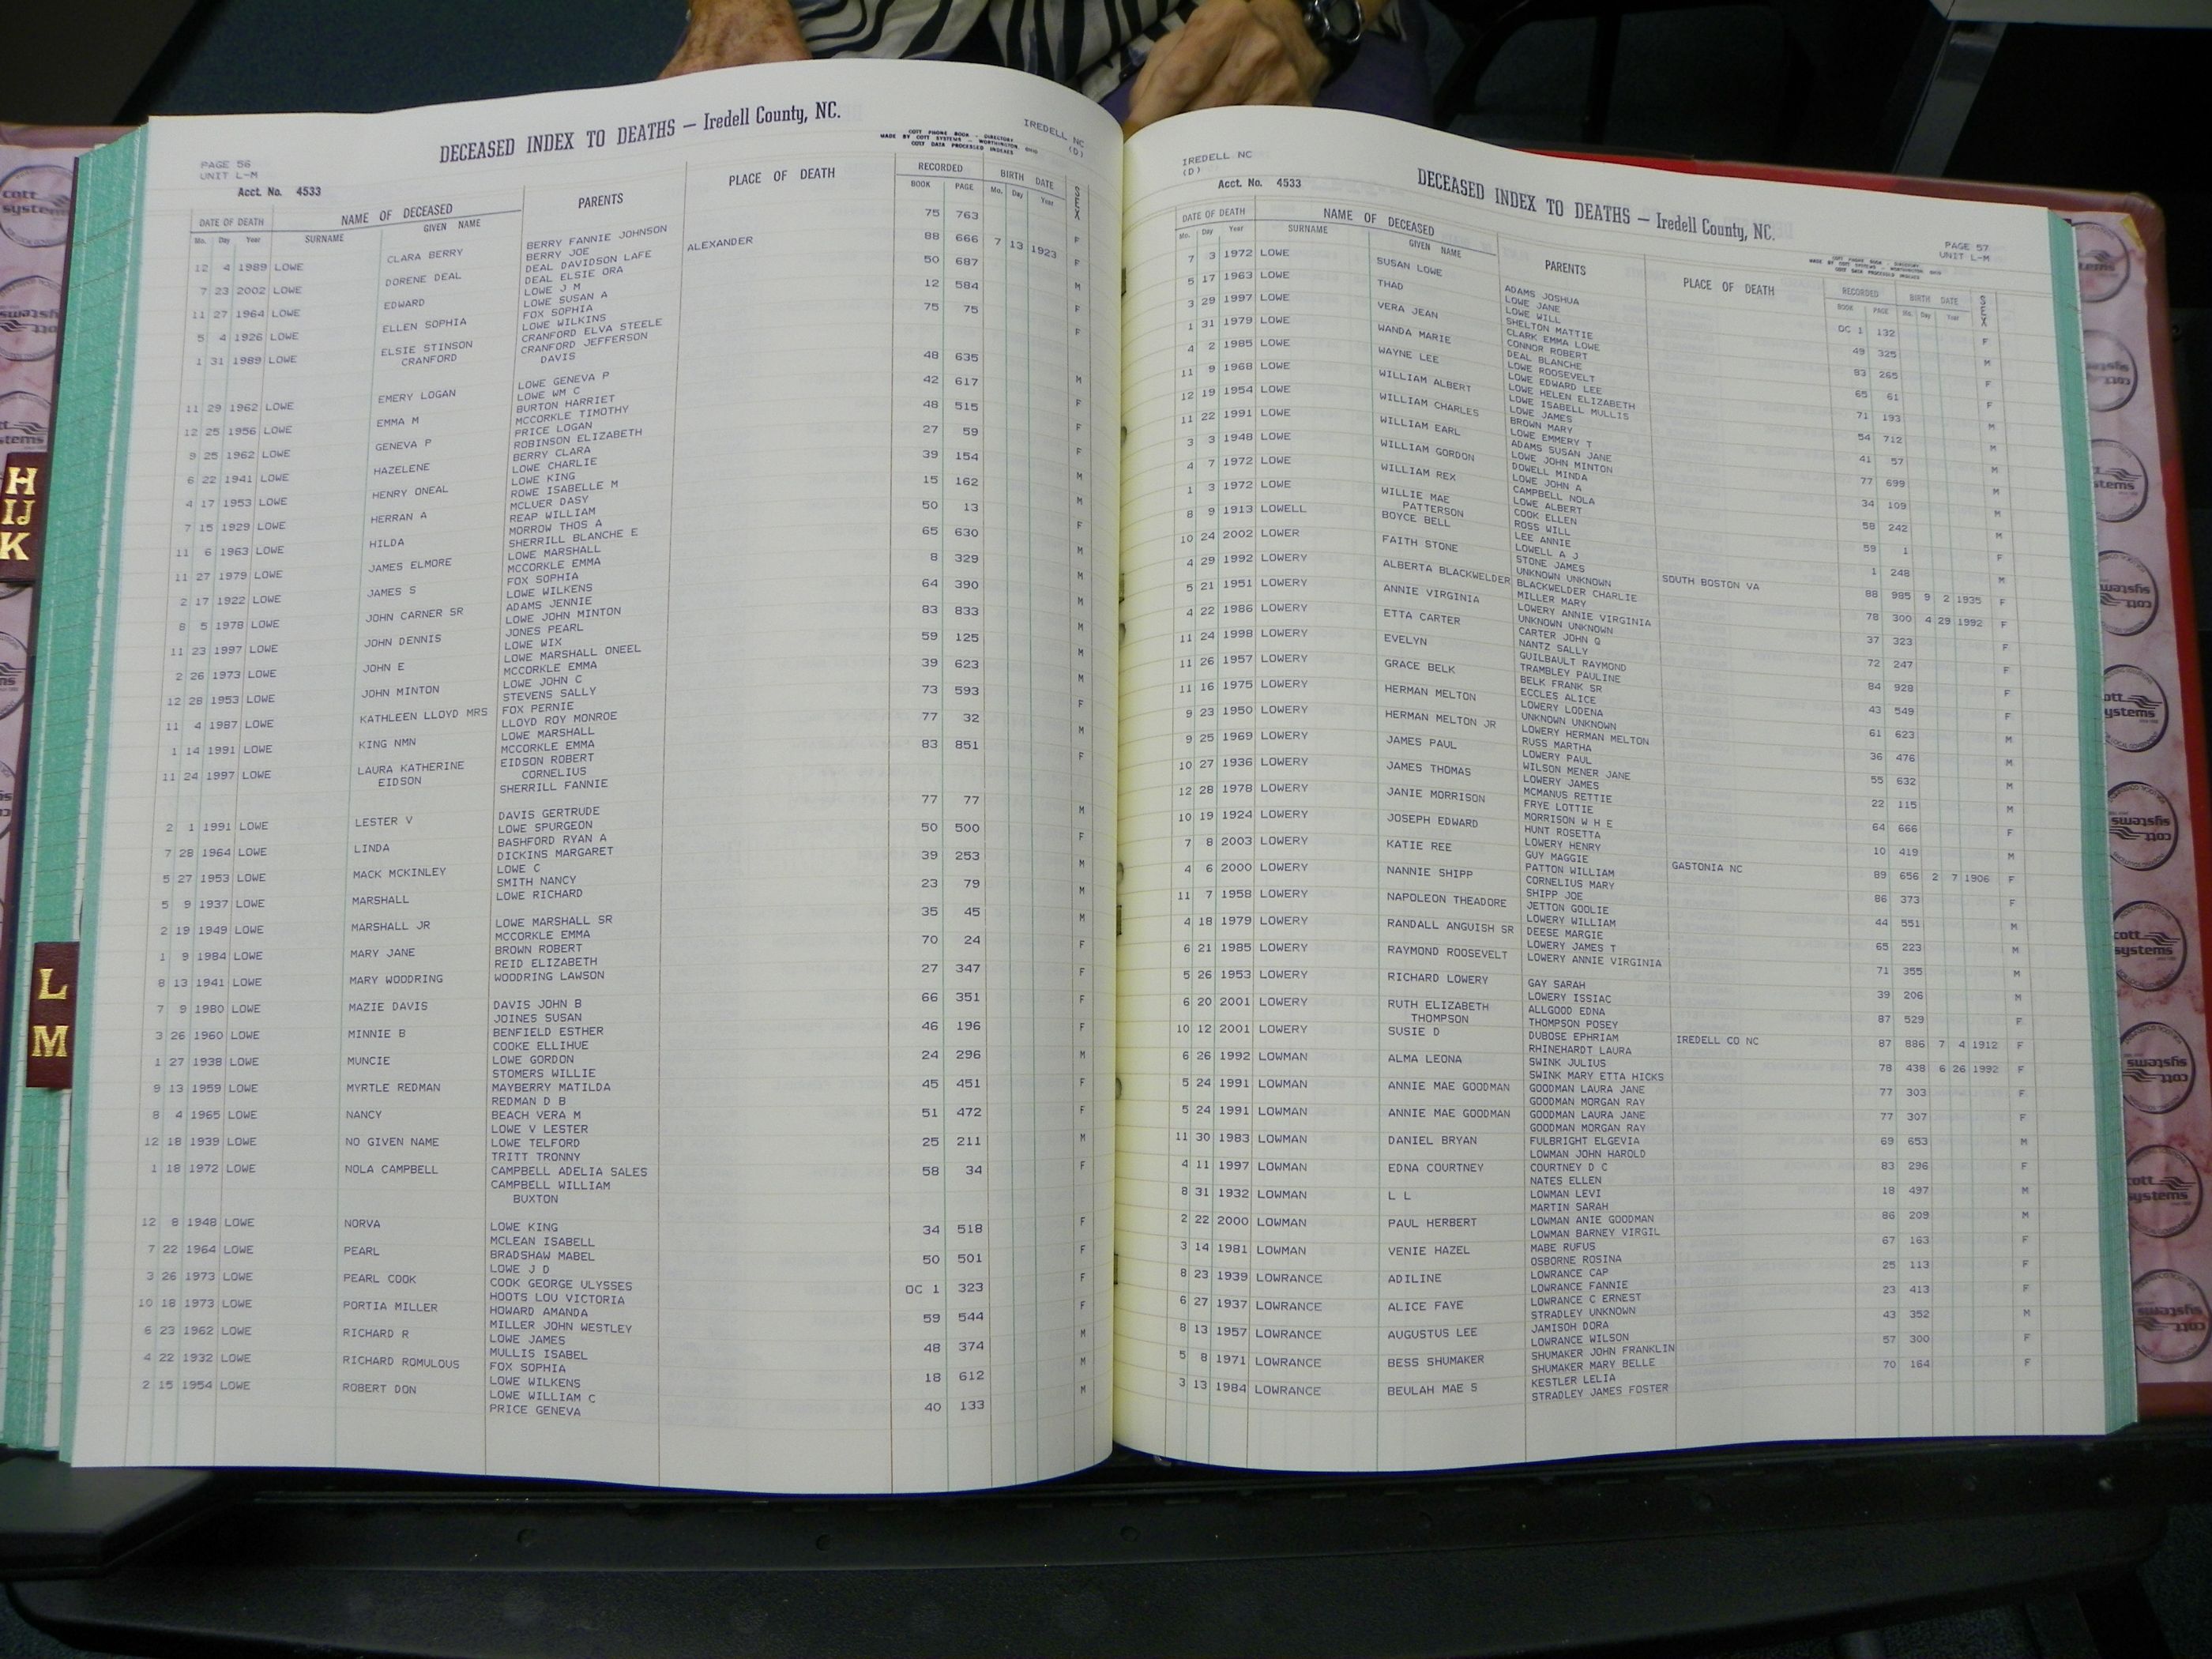 IREDELL NC
(D)
DECEASED INDEX TO DEATHS — Iredell County, NC.
COTT PHONE BOOK - DIRECTORY
MADE BY COTT SYSTEMS - WORTHINGTON, OHIO
COTT DATA PROCESSED INDEXES
PAGE 56
UNIT L-M
Acct. No. 4533
DATE OF DEATH NAME OF DECEASED PARENTS PLACE OF DEATH RECORDED BIRTH DATE SEX
Mo. Day Year SURNAME GIVEN NAME BOOK PAGE Mo. Day Year
12 4 1989 LOWE CLARA BERRY BERRY FANNIE JOHNSON 75 763 F
BERRY JOE
7 23 2002 LOWE DORENE DEAL DEAL DAVIDSON LAFE ALEXANDER 88 666 7 13 1923 F
DEAL ELSIE ORA
11 27 1964 LOWE EDWARD LOWE J M 50 687 M
LOWE SUSAN A
5 4 1926 LOWE ELLEN SOPHIA FOX SOPHIA 12 584 F
LOWE WILKINS
1 31 1989 LOWE ELSIE STINSON CRANFORD ELVA STEELE 75 75 F
CRANFORD CRANFORD JEFFERSON
DAVIS
11 29 1962 LOWE EMERY LOGAN LOWE GENEVA P 48 635 M
LOWE WM C
12 25 1956 LOWE EMMA M BURTON HARRIET 42 617 F
MCCORKLE TIMOTHY
9 25 1962 LOWE GENEVA P PRICE LOGAN 48 515 F
ROBINSON ELIZABETH
6 22 1941 LOWE HAZELENE BERRY CLARA 27 59 F
LOWE CHARLIE
4 17 1953 LOWE HENRY ONEAL LOWE KING 39 154 M
ROWE ISABELLE M
7 15 1929 LOWE HERRAN A MCLUER DASY 15 162
REAP WILLIAM
11 6 1963 LOWE HILDA MORROW THOS A 50 13 F
SHERRILL BLANCHE E
11 27 1979 LOWE JAMES ELMORE LOWE MARSHALL 65 630 M
MCCORKLE EMMA
2 17 1922 LOWE JAMES S FOX SOPHIA 8 329 M
LOWE WILKENS
8 5 1978 LOWE JOHN CARNER SR ADAMS JENNIE 64 390 M
LOWE JOHN MINTON
11 23 1997 LOWE JOHN DENNIS JONES PEARL 83 833 M
LOWE WIX
2 26 1973 LOWE JOHN E LOWE MARSHALL ONEEL 59 125 M
MCCORKLE EMMA
12 28 1953 LOWE JOHN MINTON LOWE JOHN C 39 623 M
STEVENS SALLY
11 4 1987 LOWE KATHLEEN LLOYD MRS FOX PERNIE 73 593 F
LLOYD ROY MONROE
1 14 1991 LOWE KING NMN LOWE MARSHALL 77 32 M
MCCORKLE EMMA
11 24 1997 LOWE LAURA KATHERINE EIDSON ROBERT 83 851 F
EIDSON CORNELIUS
SHERRILL FANNIE
2 1 1991 LOWE LESTER V DAVIS GERTRUDE 77 77 M
LOWE SPURGEON
7 28 1964 LOWE LINDA BASHFORD RYAN A 50 500 F
DICKINS MARGARET
5 27 1953 LOWE MACK MCKINLEY LOWE C 39 253 M
SMITH NANCY
5 9 1937 LOWE MARSHALL LOWE RICHARD 23 79 M
2 19 1949 LOWE MARSHALL JR LOWE MARSHALL SR 35 45 M
MCCORKLE EMMA
1 9 1984 LOWE MARY JANE BROWN ROBERT 70 24 F
REID ELIZABETH
8 13 1941 LOWE MARY WOODRING WOODRING LAWSON 27 347 F
7 9 1980 LOWE MAZIE DAVIS DAVIS JOHN B 66 351 F
JOINES SUSAN
3 26 1960 LOWE MINNIE B BENFIELD ESTHER 46 196 F
COOKE ELLIHUE
1 27 1938 LOWE MUNCIE LOWE GORDON 24 296 M
STOMERS WILLIE
9 13 1959 LOWE MYRTLE REDMAN MAYBERRY MATILDA 45 451 F
REDMAN D B
8 4 1965 LOWE NANCY BEACH VERA M 51 472 F
LOWE V LESTER
12 18 1939 LOWE NO GIVEN NAME LOWE TELFORD 25 211 M
TRITT TRONNY
1 18 1972 LOWE NOLA CAMPBELL CAMPBELL ADELIA SALES 58 34 F
CAMPBELL WILLIAM
BUXTON
12 8 1948 LOWE NORVA LOWE KING 34 518 F
MCLEAN ISABELL
7 22 1964 LOWE PEARL BRADSHAW MABEL 50 501 F
LOWE J D
3 26 1973 LOWE PEARL COOK COOK GEORGE ULYSSES DC 1 323 F
HOOTS LOU VICTORIA
10 18 1973 LOWE PORTIA MILLER HOWARD AMANDA 59 544 F
MILLER JOHN WESTLEY
6 23 1962 LOWE RICHARD R LOWE JAMES 48 374 M
MULLIS ISABEL
4 22 1932 LOWE RICHARD ROMULOUS FOX SOPHIA 18 612 M
LOWE WILKENS
2 15 1954 LOWE ROBERT DON LOWE WILLIAM C 40 133 M
PRICE GENEVA
IREDELL NC
(D)
Acct. No. 4533
DECEASED INDEX TO DEATHS — Iredell County, NC.
PAGE 57
UNIT L-M
DATE OF DEATH NAME OF DECEASED PARENTS PLACE OF DEATH RECORDED BIRTH DATE SEX
Mo. Day Year SURNAME GIVEN NAME BOOK PAGE Mo. Day Year
7 3 1972 LOWE SUSAN LOWE ADAMS JOSHUA DC 1 132 F
LOWE JANE
5 17 1963 LOWE THAD LOWE WILL 49 325 M
SHELTON MATTIE
3 29 1997 LOWE VERA JEAN CLARK EMMA LOWE 83 265 F
CONNOR ROBERT
1 31 1979 LOWE WANDA MARIE DEAL BLANCHE 65 61 F
LOWE ROOSEVELT
4 2 1985 LOWE WAYNE LEE LOWE EDWARD LEE 71 193 M
LOWE HELEN ELIZABETH
11 9 1968 LOWE WILLIAM ALBERT LOWE ISABELL MULLIS 54 712 M
LOWE JAMES
12 19 1954 LOWE WILLIAM CHARLES BROWN MARY 41 57 M
LOWE EMMERY T
11 22 1991 LOWE WILLIAM EARL ADAMS SUSAN JANE 77 699 M
LOWE JOHN MINTON
3 3 1948 LOWE WILLIAM GORDON DOWELL MINDA 34 109 M
LOWE JOHN A
4 7 1972 LOWE WILLIAM REX CAMPBELL NOLA 58 242 M
LOWE ALBERT
1 3 1972 LOWE WILLIE MAE COOK ELLEN 59 1 F
PATTERSON ROSS WILL
8 9 1913 LOWELL BOYCE BELL LEE ANNIE SOUTH BOSTON VA 1 248 M
LOWELL A J
10 24 2002 LOWER FAITH STONE STONE JAMES 88 985 9 2 1935 F
UNKNOWN UNKNOWN
4 29 1992 LOWERY ALBERTA BLACKWELDER BLACKWELDER CHARLIE 78 300 4 29 1992 F
MILLER MARY
5 21 1951 LOWERY ANNIE VIRGINIA LOWERY ANNIE VIRGINIA 37 323 F
UNKNOWN UNKNOWN
4 22 1986 LOWERY ETTA CARTER CARTER JOHN Q 72 247 F
NANTZ SALLY
11 24 1998 LOWERY EVELYN GUILBAULT RAYMOND 84 928 F
TRAMBLEY PAULINE
11 26 1957 LOWERY GRACE BELK BELK FRANK SR 43 549 F
ECCLES ALICE
11 16 1975 LOWERY HERMAN MELTON LOWERY LODENA 61 623 M
UNKNOWN UNKNOWN
9 23 1950 LOWERY HERMAN MELTON JR LOWERY HERMAN MELTON 36 476 M
RUSS MARTHA
9 25 1969 LOWERY JAMES PAUL LOWERY PAUL 55 632 M
WILSON MENER JANE
10 27 1936 LOWERY JAMES THOMAS LOWERY JAMES 22 115 M
MCMANUS RETTIE
12 28 1978 LOWERY JANIE MORRISON FRYE LOTTIE 64 666 F
MORRISON W H E
10 19 1924 LOWERY JOSEPH EDWARD HUNT ROSETTA 10 419 M
LOWERY HENRY
7 8 2003 LOWERY KATIE REE GUY MAGGIE GASTONIA NC 89 656 2 7 1906 F
PATTON WILLIAM
4 6 2000 LOWERY NANNIE SHIPP CORNELIUS MARY 86 373 F
SHIPP JOE
11 7 1958 LOWERY NAPOLEON THEADORE JETTON GOOLIE 44 551 M
LOWERY WILLIAM
4 18 1979 LOWERY RANDALL ANGUISH SR DEESE MARGIE 65 223 M
LOWERY JAMES T
6 21 1985 LOWERY RAYMOND ROOSEVELT LOWERY ANNIE VIRGINIA 71 355 M
5 26 1953 LOWERY RICHARD LOWERY GAY SARAH 39 206 M
LOWERY ISSIAC
6 20 2001 LOWERY RUTH ELIZABETH ALLGOOD EDNA 87 529 F
THOMPSON THOMPSON POSEY
10 12 2001 LOWERY SUSIE D DUBOSE EPHRIAM IREDELL CO NC 87 886 7 4 1912 F
RHINEHARDT LAURA
6 26 1992 LOWMAN ALMA LEONA SWINK JULIUS 78 438 6 26 1992 F
SWINK MARY ETTA HICKS
5 24 1991 LOWMAN ANNIE MAE GOODMAN GOODMAN LAURA JANE 77 303 F
GOODMAN MORGAN RAY
5 24 1991 LOWMAN ANNIE MAE GOODMAN GOODMAN LAURA JANE 77 307 F
GOODMAN MORGAN RAY
11 30 1983 LOWMAN DANIEL BRYAN FULBRIGHT ELGEVIA 69 653 M
LOWMAN JOHN HAROLD
4 11 1997 LOWMAN EDNA COURTNEY COURTNEY D C 83 296 F
NATES ELLEN
8 31 1932 LOWMAN L L LOWMAN LEVI 18 497 M
MARTIN SARAH
2 22 2000 LOWMAN PAUL HERBERT LOWMAN ANIE GOODMAN 86 209 M
LOWMAN BARNEY VIRGIL
3 14 1981 LOWMAN VENIE HAZEL MABE RUFUS 67 163 F
OSBORNE ROSINA
8 23 1939 LOWRANCE ADILINE LOWRANCE CAP 25 113 F
LOWRANCE FANNIE
6 27 1937 LOWRANCE ALICE FAYE LOWRANCE C ERNEST 23 413 F
STRADLEY UNKNOWN
8 13 1957 LOWRANCE AUGUSTUS LEE JAMISOH DORA 43 352 M
LOWRANCE WILSON
5 8 1971 LOWRANCE BESS SHUMAKER SHUMAKER JOHN FRANKLIN 57 300 F
SHUMAKER MARY BELLE
3 13 1984 LOWRANCE BEULAH MAE S KESTLER LELIA 70 164 F
STRADLEY JAMES FOSTER
H
IJ
K
L
M
cott
systems